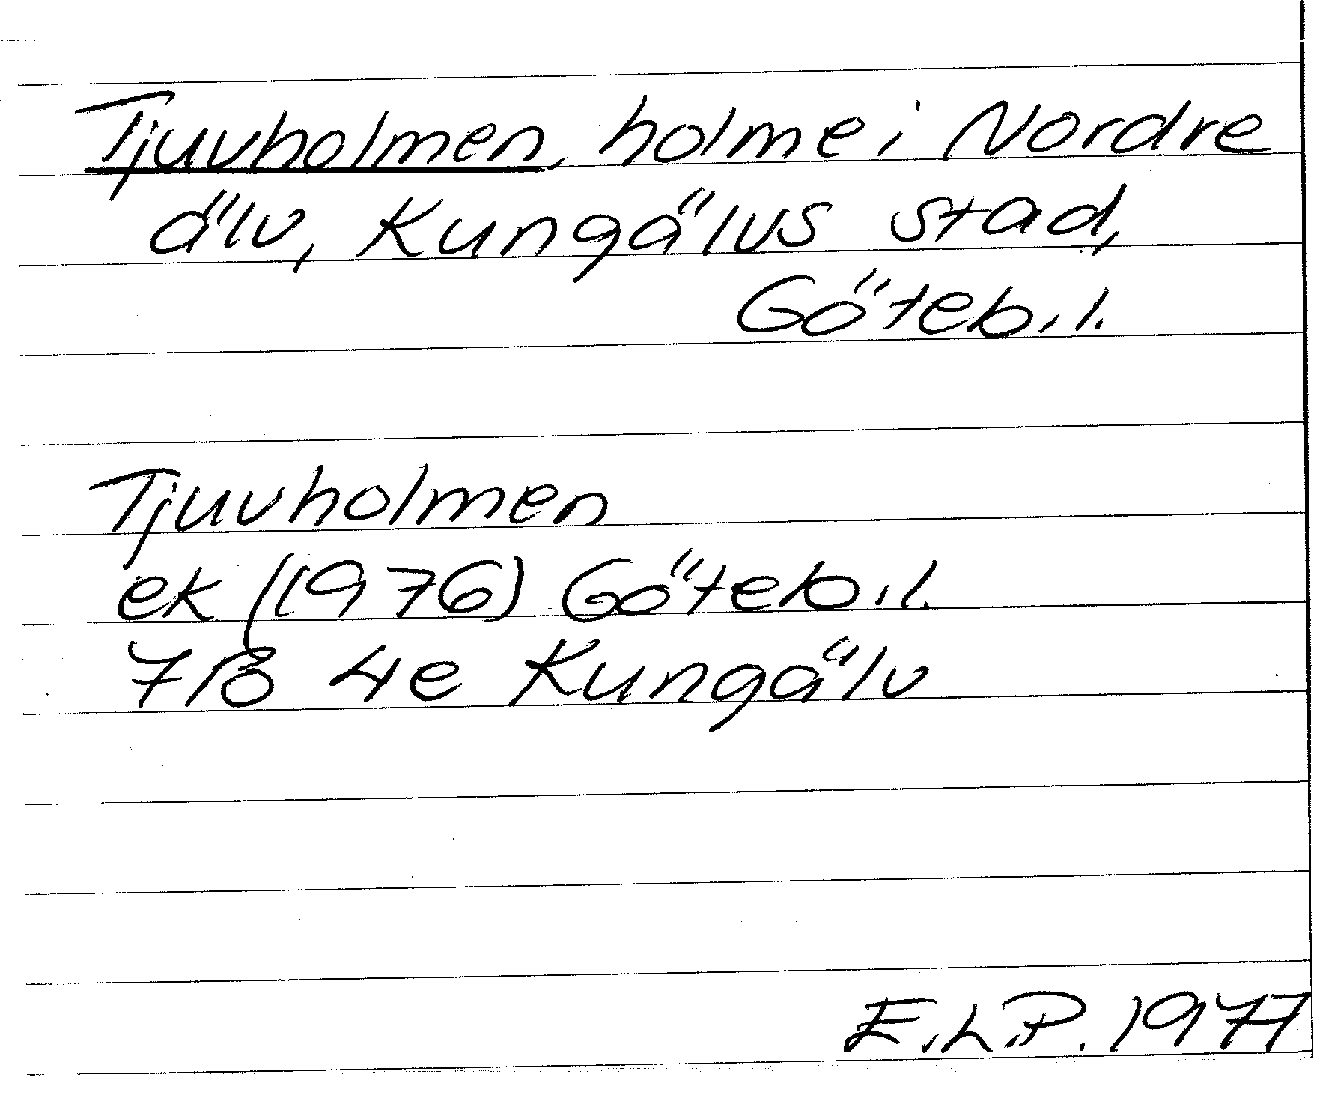 Tjuvholmen, holme i Nordre
älv, Kungälvs stad,
Göteb. l.
Tjuvholmen
ek (1976) Göteb. l.
7B 4e Kungälv
E.L.P. 1977